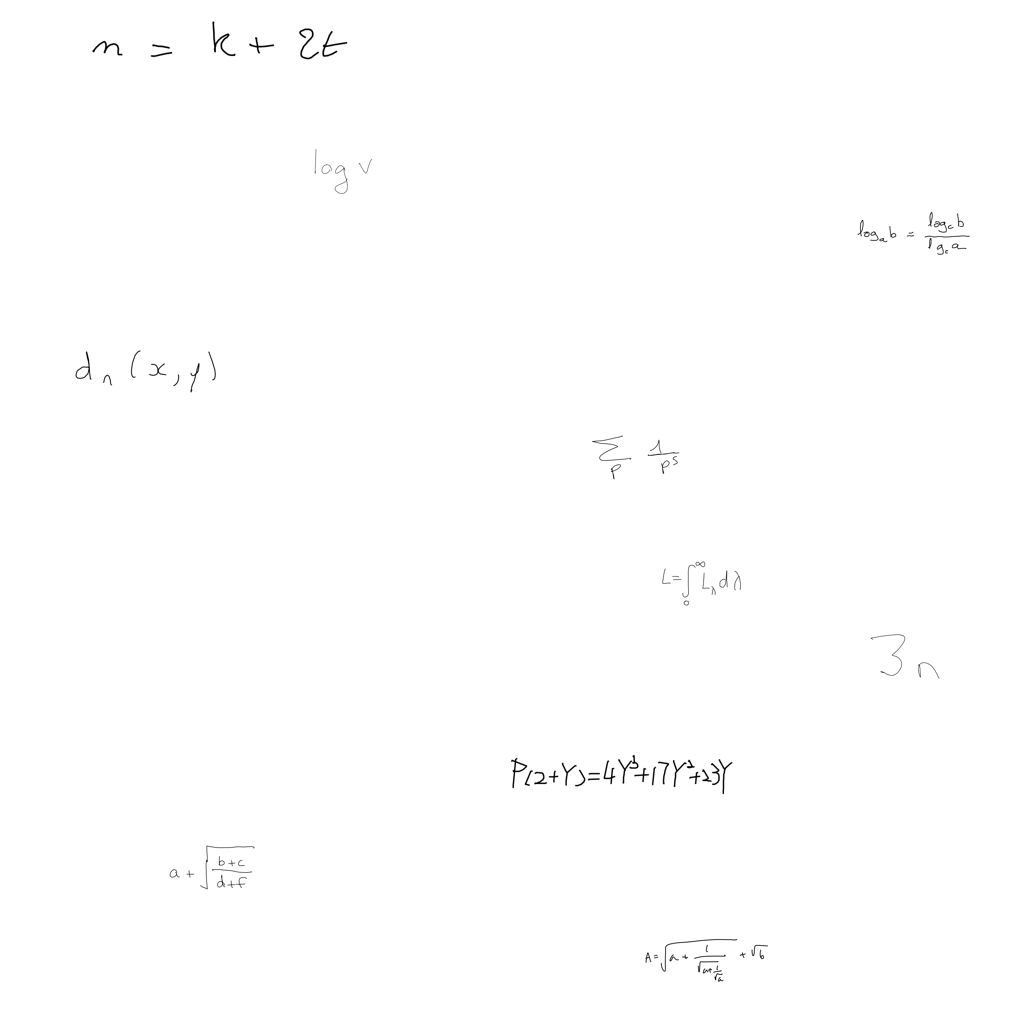 n = k + 2t
log v
log_a b = \frac{log_c b}{lg_c a}
d_n (x, y)
\sum_p \frac{1}{p^s}
L = \int_0^∞ L_λ dλ
3n
P(2+Y)=4Y^3+17Y^2+23Y
a + \sqrt{\frac{b+c}{d+f}}
A = \sqrt{a + \frac{1}{\sqrt{a+\frac{1}{\sqrt{a}}}}} + \sqrt{b}